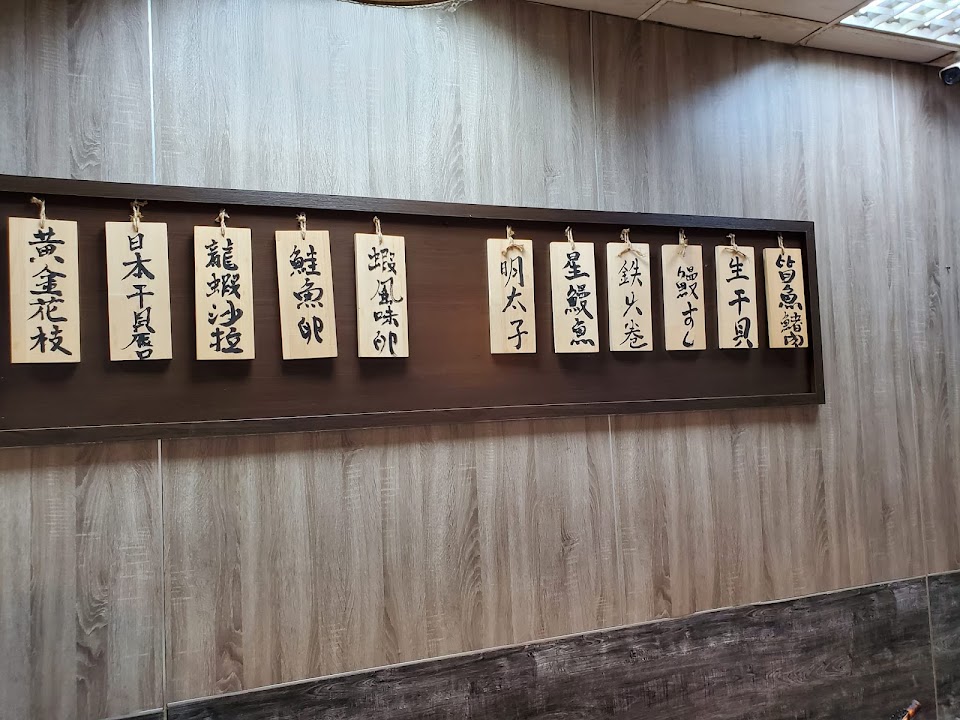 黃金花枝
日本干貝唇
龍蝦沙拉
鮭魚卵
蝦風味卵
明太子
星鰻魚
鉄火卷
鰻すし
生干貝
比目魚鰭肉